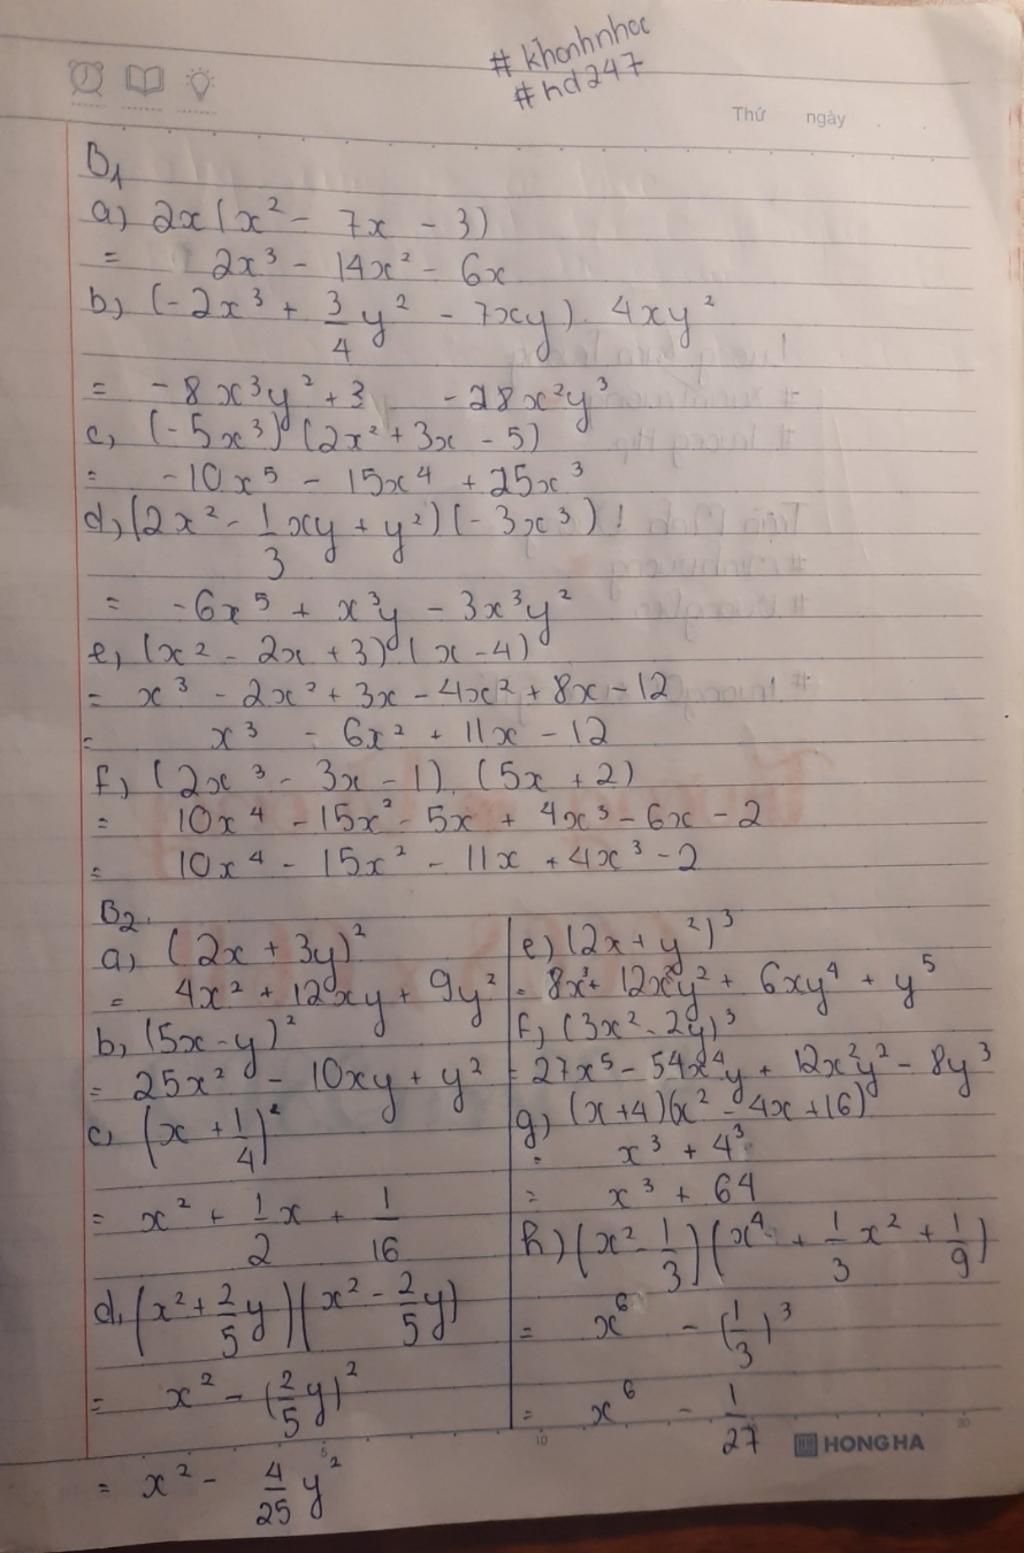 #khanhnhoc
#nd247
Thứ ngày
B1
a) 2x(x² - 7x - 3)
= 2x³ - 14x² - 6x
b) (-2x³ + 3/4 y² - 7xy). 4xy²
= -8x³y² + 3 - 28x²y³
c) (-5x³)(2x² + 3x - 5)
= -10x⁵ - 15x⁴ + 25x³
d) (2x² - 1/3 xy + y²)(-3x³)!
= -6x⁵ + x³y - 3x³y²
e) (x² - 2x + 3)(x - 4)
= x³ - 2x² + 3x - 4x² + 8x - 12
= x³ - 6x² + 11x - 12
f) (2x³ - 3x - 1). (5x + 2)
= 10x⁴ - 15x² - 5x + 4x³ - 6x - 2
= 10x⁴ - 15x² - 11x + 4x³ - 2
B2.
a) (2x + 3y)²
= 4x² + 12xy + 9y²
b) (5x - y)²
= 25x² - 10xy + y²
c) (x + 1/4)²
= x² + 1/2 x + 1/16
d) (x² + 2/5 y)(x² - 2/5 y)
= x² - (2/5 y)²
= x² - 4/25 y²
e) (2x + y²)³
= 8x³ + 12x²y² + 6xy⁴ + y⁵
f) (3x² - 2y)³
= 27x⁵ - 54x⁴y + 12x²y² - 8y³
g) (x + 4)(x² - 4x + 16)
= x³ + 4³
= x³ + 64
h) (x² - 1/3)(x⁴ + 1/3 x² + 1/9)
= x⁶ - (1/3)³
= x⁶ - 1/27
5 10 20
HONG HA